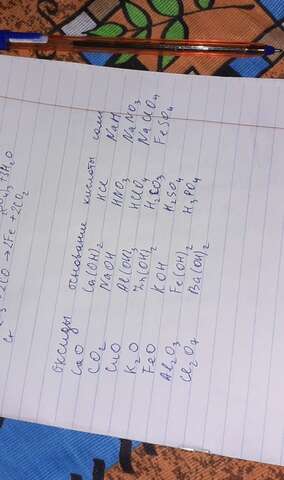 → 2Fe + 2CO₂
оксиды основание кислоты соли
CaO Ca(OH)₂ HCl NaH
CO₂ NaOH HNO₃ NaNO₃
CuO Al(OH)₃ HClO₄ NaClO₄
K₂O Zn(OH)₂ H₂CO₃ FeSO₄
FeO KOH H₂SO₄
Al₂O₃ Fe(OH)₂ H₃PO₄
Cl₂O₇ Ba(OH)₂